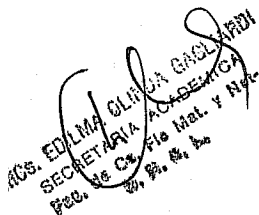 MCs. EDILMA OLINDA GAGLIARDI
SECRETARIA ACADEMICA
Fac. de Cs. Fis Mat. y Nat.
U. N. S. L.